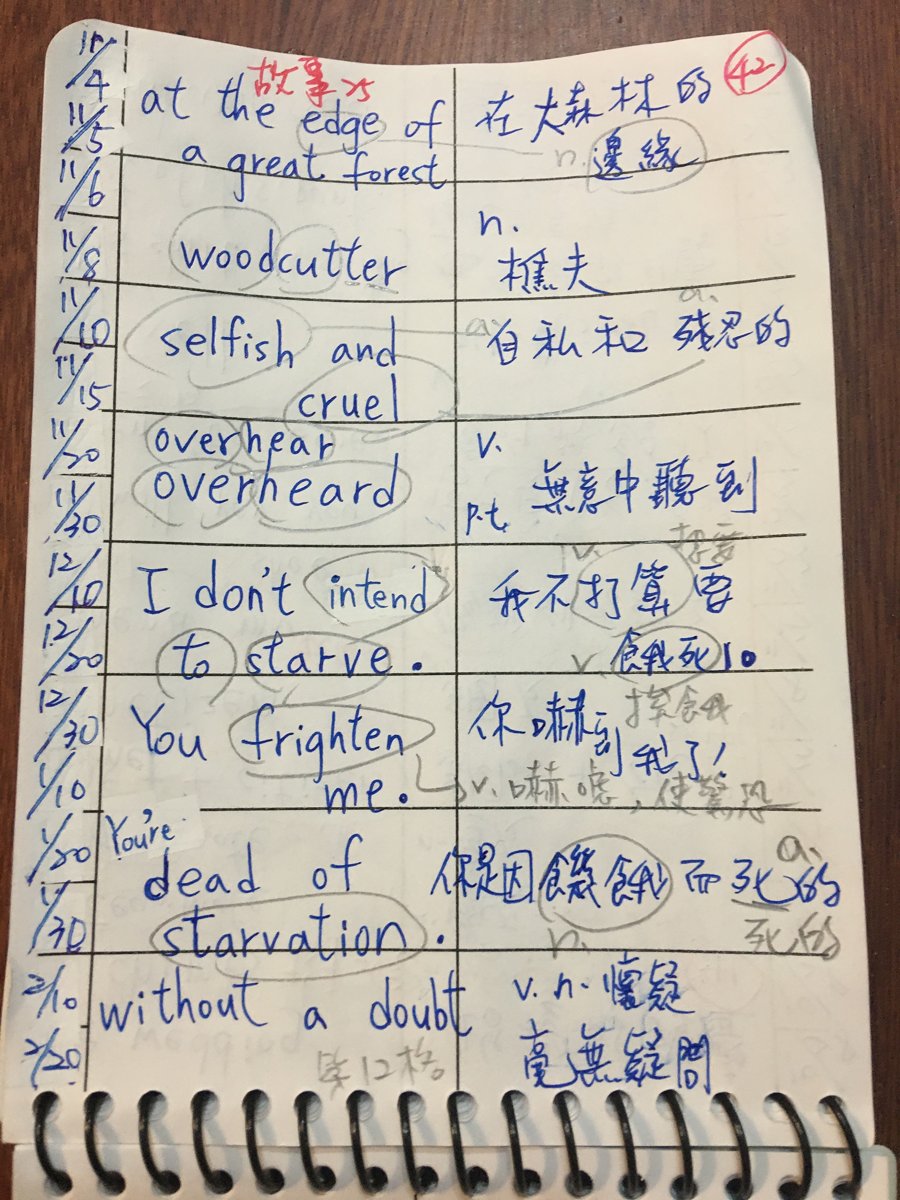 11/4
11/5
11/6
11/8
11/10
11/15
11/20
11/30
12/10
12/20
12/30
1/10
1/20
1/30
2/10
2/20
故事25
42
at the edge of
a great forest
在大森林的
n. 邊緣
woodcutter
n.
樵夫
selfish and
cruel
a. a.
自私和 殘忍的
overhear
overheard
v.
p.t. 無意中聽到
I don't intend
to starve.
v.
我不打算要
v. 餓死。
挨餓
You frighten
me.
你嚇到我了!
v. 嚇唬,使驚恐
You're
dead of
starvation.
a.
你是因飢餓而死的
n. 死的
without a doubt
v. n. 懷疑
毫無疑問
第12格